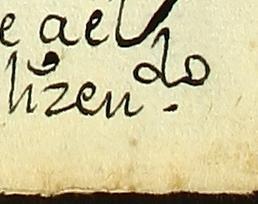 e ael
lizen.do